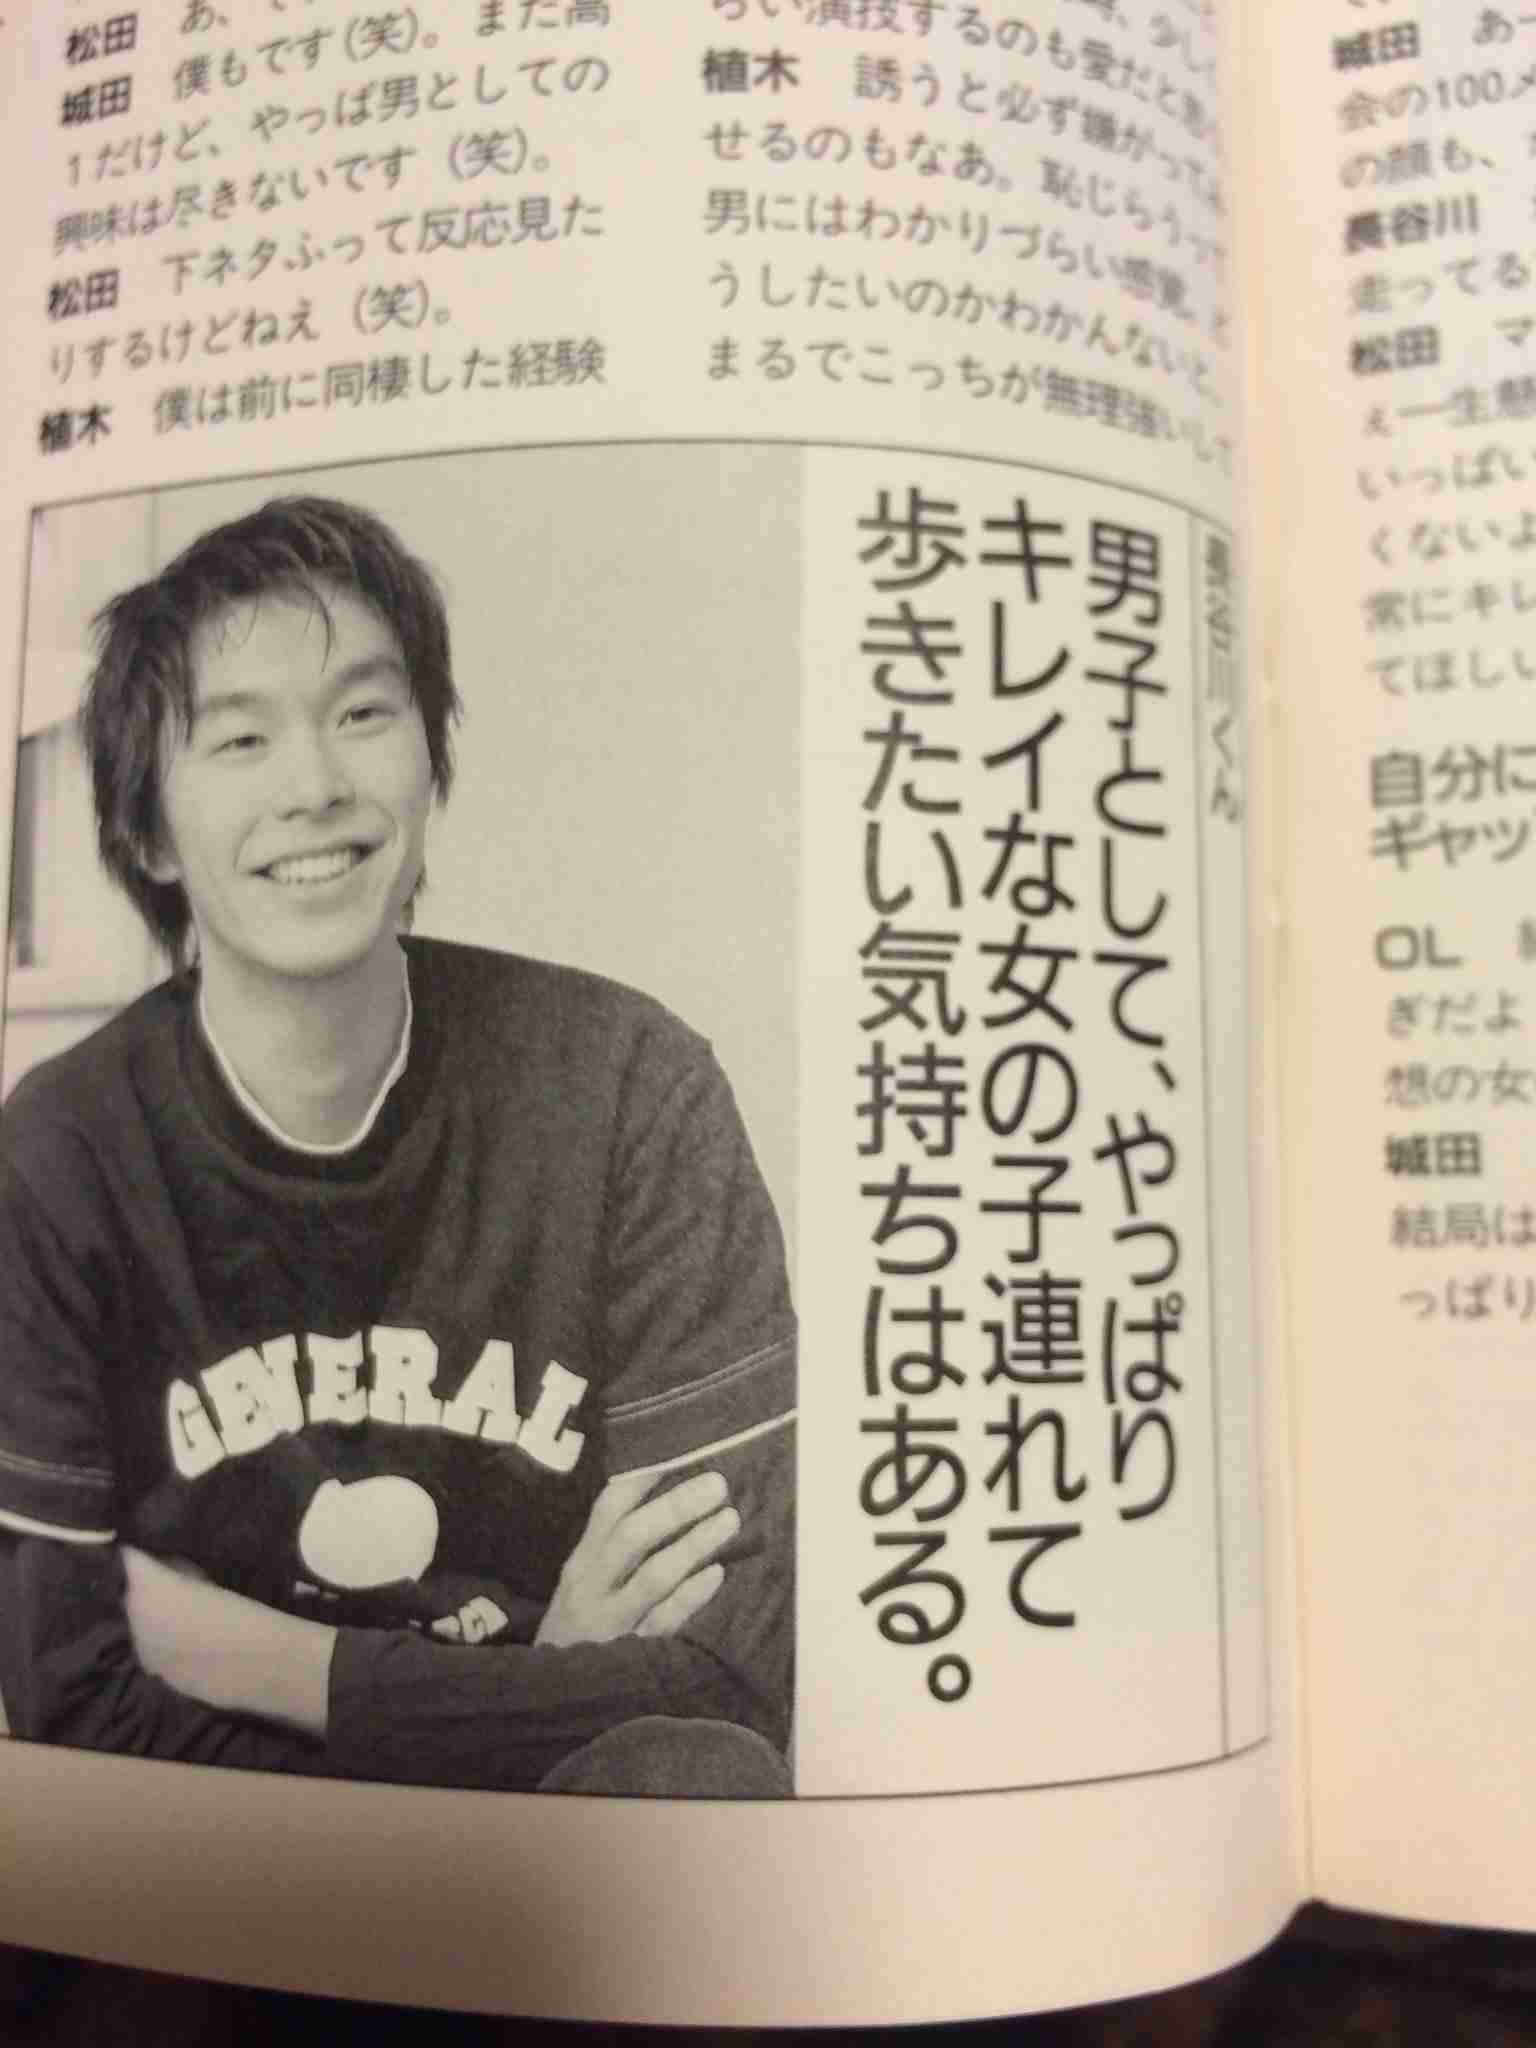 松田　あ、
城田　僕もです(笑)。まだ高
1だけど、やっぱ男としての
興味は尽きないです（笑）。
松田　下ネタふって反応見た
りするけどねえ（笑）。
植木　僕は前に同棲した経験
らい演技するのも愛だと思
植木　誘うと必ず嫌がって
せるのもなあ。恥じらうって
男にはわかりづらい感覚。ど
うしたいのかわかんないと、
まるでこっちが無理強いして
長谷川くん
男子として、やっぱり
キレイな女の子連れて
歩きたい気持ちはある。
GENERAL
城田　あー
会の100メ
の顔も、
長谷川
走ってる
松田　マ
ぇ一生懸
いっぱい
くないよ
常にキレ
てほしい
自分に
ギャッ
OL
ぎだよ
想の女
城田
結局は
っぱり